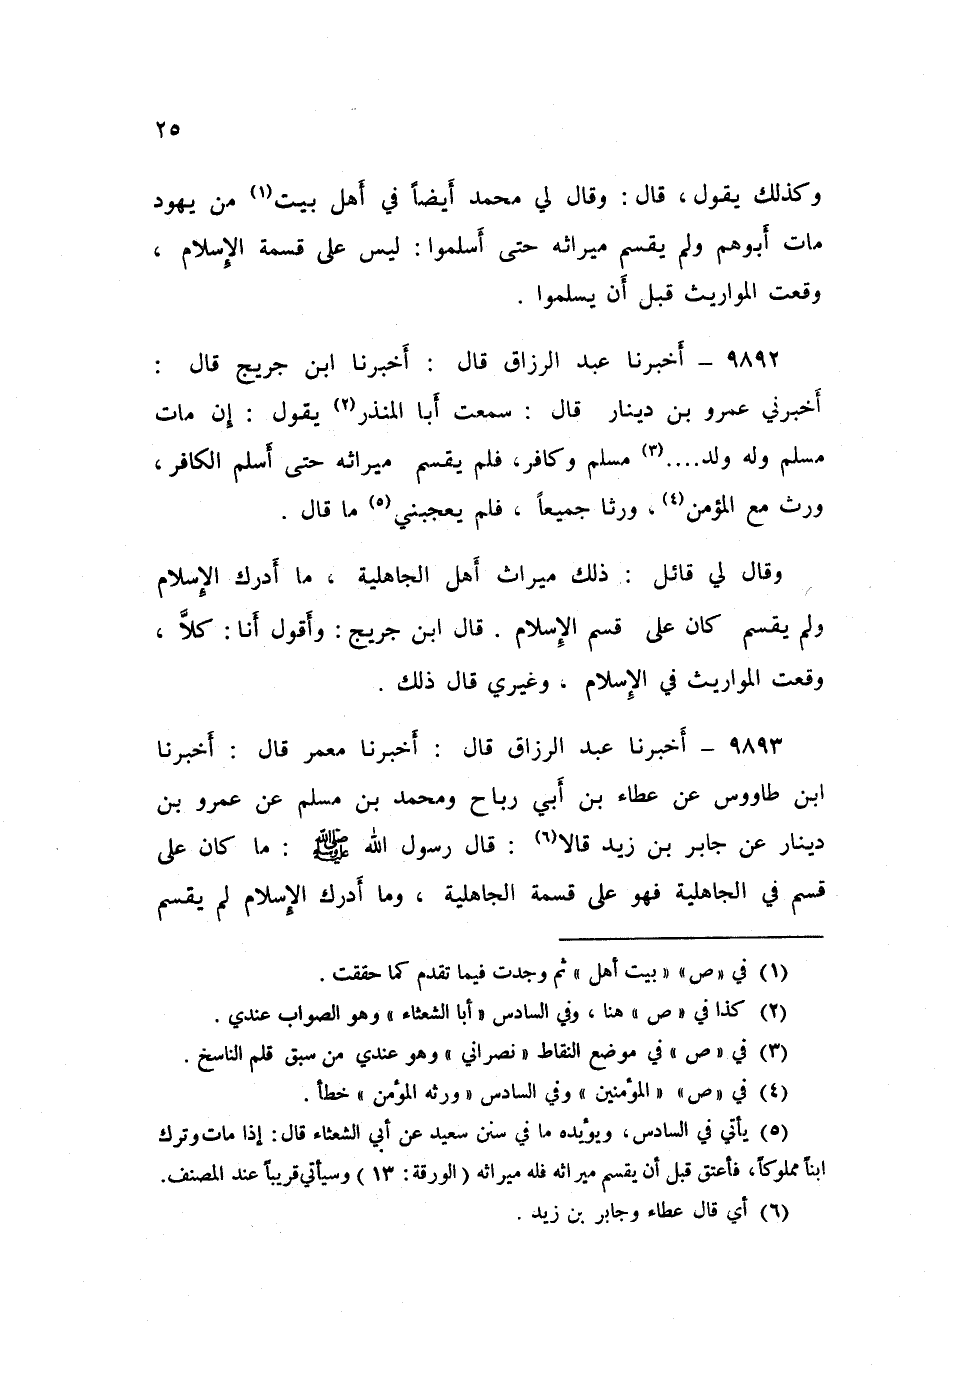 ٢٥
وكذلك يقول ، قال : وقال لي محمد أَيضاً في أَهل بيت(١) من يهود
مات أَبوهم ولم يقسم ميراثه حتى أَسلموا : ليس على قسمة الإِسلام ،
وقعت المواريث قبل أَن يسلموا .
٩٨٩٢ – أَخبرنا عبد الرزاق قال : أَخبرنا ابن جريج قال :
أَخبرني عمرو بن دينار قال : سمعت أَبا المنذر(٢) يقول : إِن مات
مسلم وله ولد....(٣) مسلم وكافر، فلم يقسم ميراثه حتى أَسلم الكافر ،
ورث مع المؤمن(٤) ، ورثا جميعاً ، فلم يعجبني(٥) ما قال .
وقال لي قائل : ذلك ميراث أَهل الجاهلية ، ما أَدرك الإِسلام
ولم يقسم كان على قسم الإِسلام . قال ابن جريج : وأَقول أَنا : كلاَّ ،
وقعت المواريث في الإِسلام ، وغيري قال ذلك .
٩٨٩٣ – أَخبرنا عبد الرزاق قال : أَخبرنا معمر قال : أَخبرنا
ابن طاووس عن عطاء بن أَبي رباح ومحمد بن مسلم عن عمرو بن
دينار عن جابر بن زيد قالا(٦) : قال رسول الله ﷺ : ما كان على
قسم في الجاهلية فهو على قسمة الجاهلية ، وما أَدرك الإِسلام لم يقسم
(١) في «ص» « بيت أهل » ثم وجدت فيما تقدم كما حققت .
(٢) كذا في « ص » هنا ، وفي السادس « أبا الشعثاء » وهو الصواب عندي .
(٣) في « ص » في موضع النقاط « نصراني » وهو عندي من سبق قلم الناسخ .
(٤) في «ص» « المؤمنين » وفي السادس « ورثه المؤمن » خطأ .
(٥) يأتي في السادس ، ويؤيده ما في سنن سعيد عن أبي الشعثاء قال : إذا مات وترك
ابناً مملوكاً، فأعتق قبل أن يقسم ميراثه فله ميراثه ( الورقة : ١٣ ) وسيأتي قريباً عند المصنف.
(٦) أي قال عطاء وجابر بن زيد .